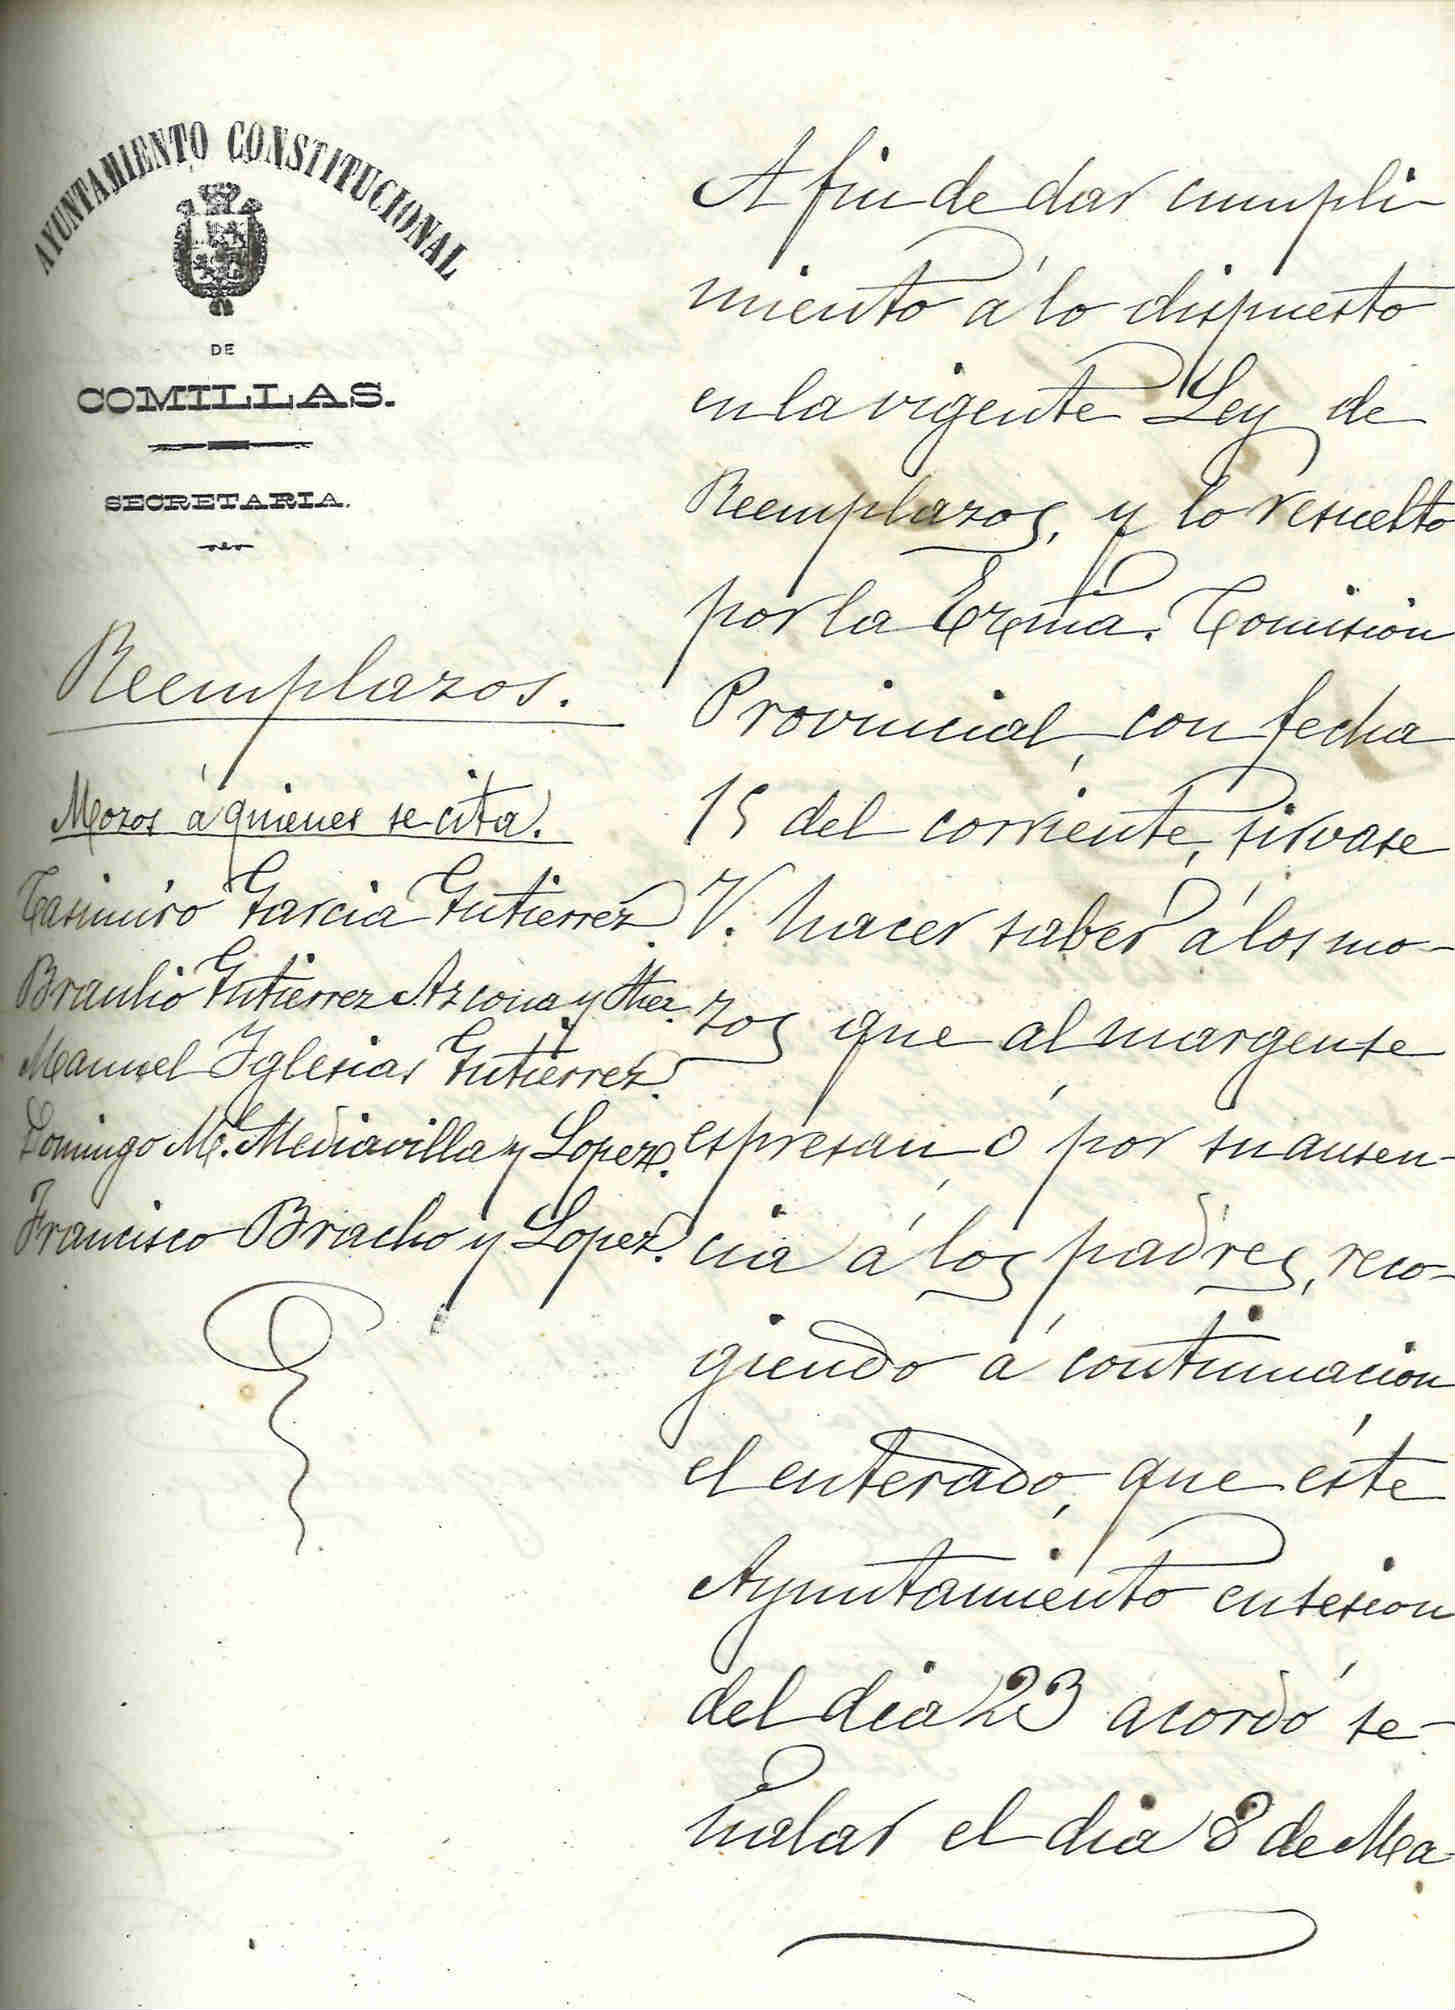 AYUNTAMIENTO CONSTITUCIONAL
DE
COMILLAS.
SECRETARIA.
Reemplazos.
Mozos á quienes se cita.
Casimiro Garcia Gutierrez.
Braulio Gutierrez Azcona y
Manuel Iglesias Gutierrez.
Domingo M. Mediavilla y Lopez.
Francisco Bracho y Lopez.
A fin de dar cumpli-
miento á lo dispuesto
en la vigente Ley de
Reemplazos, y lo resuelto
por la Exma. Comision
Provincial, con fecha
15 del corriente, sirvase
V. hacer saber á los mo-
zos que al margen se
espresan ó por su ausen-
cia á los padres, reco-
giendo á continuacion
el enterado, que éste
Ayuntamiento en sesion
del dia 23 acordó se-
ñalar el dia 8 de Ma-